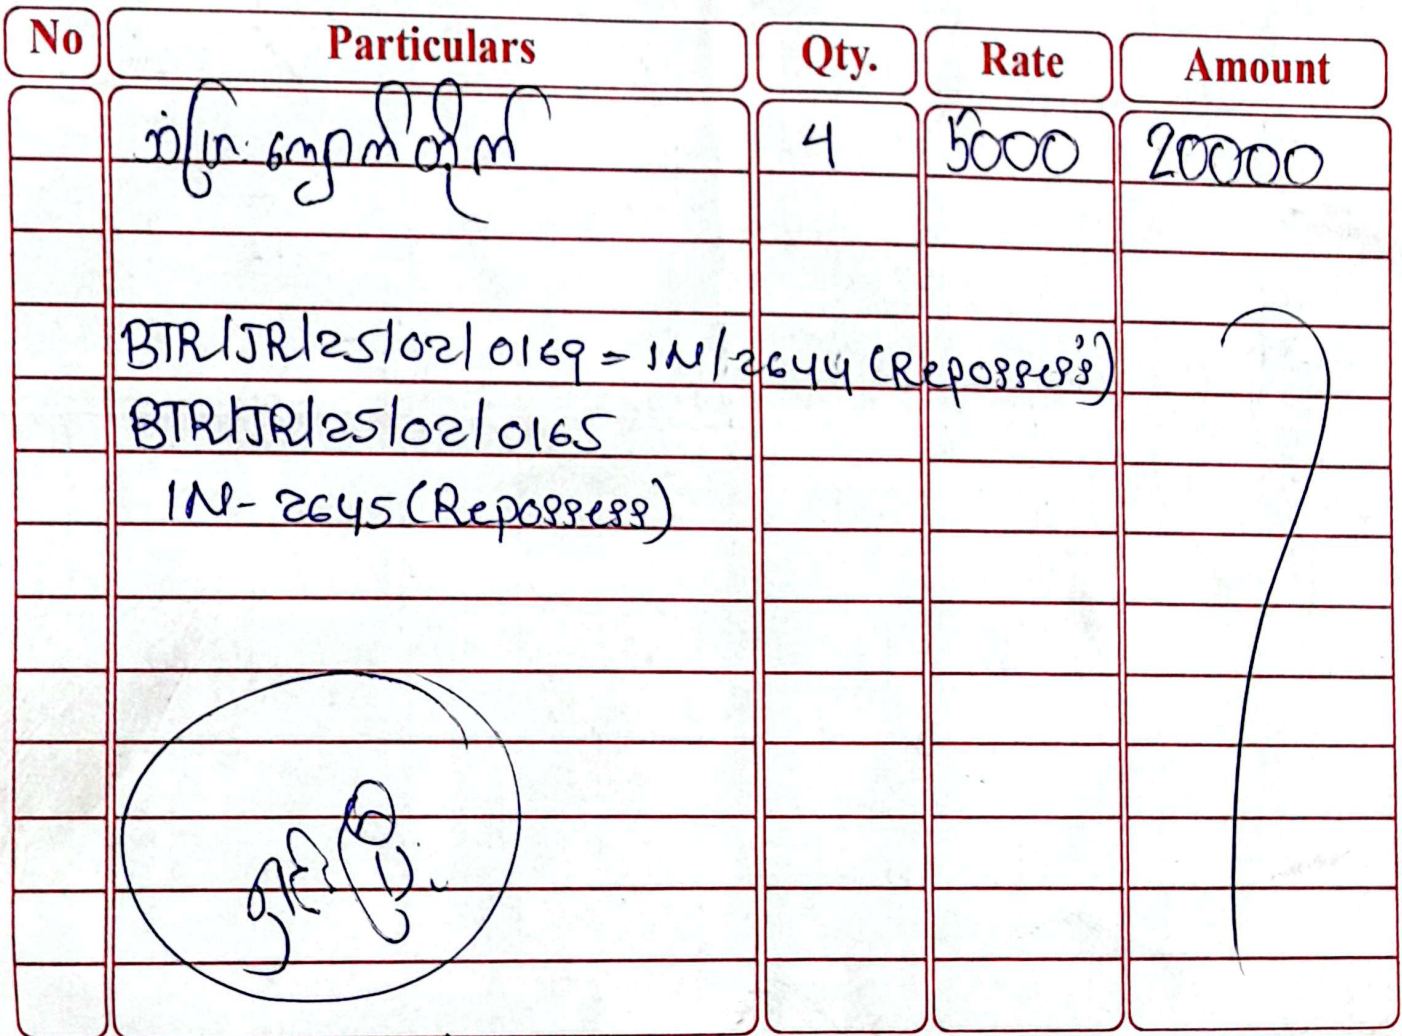 No Particulars Qty. Rate Amount
သံပြား ကျောက်တိုက် 4 5000 20000
BTR/JR/25/02/0169 = 1N/2644 (Repossess)
BTR/JR/25/02/0165
1N-2645 (Repossess)
ရှင်းပြီး